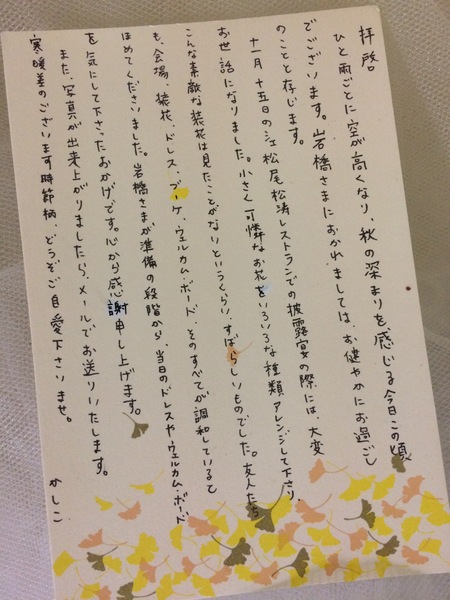 拝啓
ひと雨ごとに空が高くなり、秋の深まりを感じる今日この頃
でございます。岩橋さまにおかれましては、お健やかにお過ごし
のことと存じます。
十一月十五日のシェ松尾松涛レストランでの披露宴の際には、大変
お世話になりました。小さく可憐なお花をいろいろな種類アレンジして下さり、
こんな素敵な装花は見たことがないというくらい、すばらしいものでした。友人たち
も、会場、装花、ドレス、ブーケ、ウェルカム・ボード、そのすべてが調和していると
ほめてくださいました。岩橋さまが準備の段階から、当日のドレスやウェルカム・ボード
を気にして下さったおかげです。心から感謝申し上げます。
また、写真が出来上がりましたら、メールでお送りいたします。
寒暖差のございます時節柄、どうぞご自愛下さいませ。
かしこ